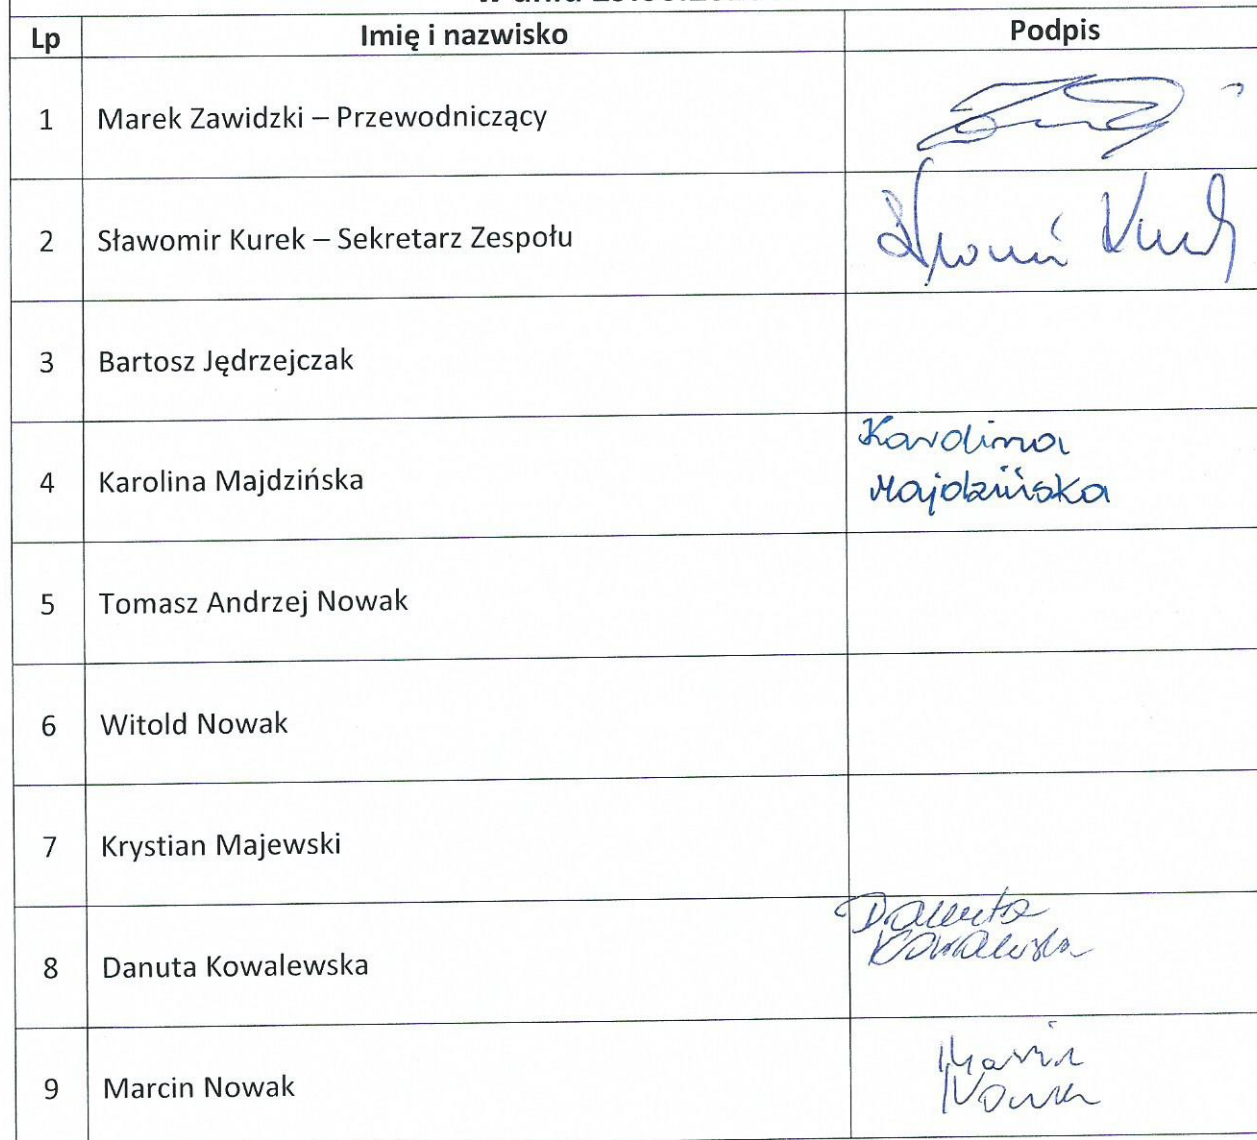 w dniu
Lp Imię i nazwisko Podpis
1 Marek Zawidzki – Przewodniczący
2 Sławomir Kurek – Sekretarz Zespołu
3 Bartosz Jędrzejczak
Karolina
4 Karolina Majdzińska Majdzińska
5 Tomasz Andrzej Nowak
6 Witold Nowak
7 Krystian Majewski
Danuta
Kowalewska
8 Danuta Kowalewska
Marcin
9 Marcin Nowak Nowak